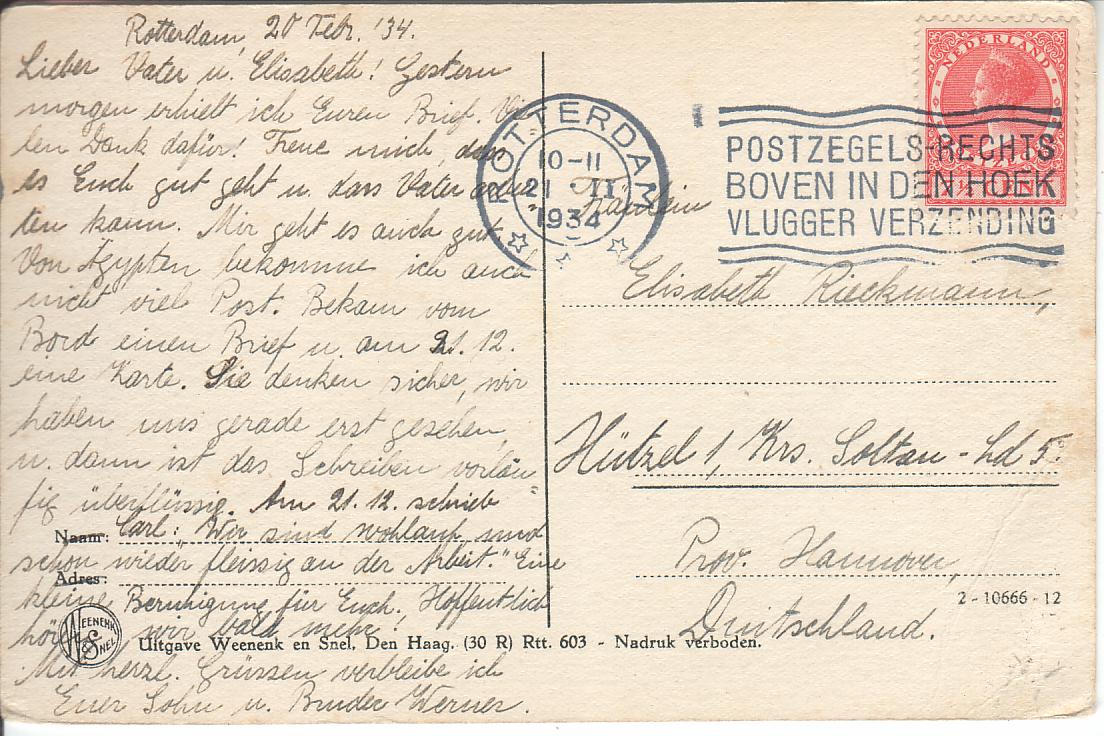 Rotterdam, 20 Febr. '34.
Lieber Vater u. Elisabeth! Gestern
morgen erhielt ich Euren Brief. Vie
len Dank dafür! Freue mich, dass
es Euch gut geht u. dass Vater arbei
ten kann. Mir geht es auch gut.
Von Ägypten bekomme ich auch
nicht viel Post. Bekam vom
Bord einen Brief u. am 21.12.
eine Karte. Sie denken sicher, wir
haben uns gerade erst gesehen
u. dann ist das Schreiben vorläu
fig überflüssig. Am 21.12. schrieb
Carl: "Wir sind wohlauf und
schon wieder fleissig an der Arbeit." Eine
kleine Beruhigung für Euch! Hoffentlich
hören wir bald mehr!
Mit herzl. Grüssen verbleibe ich
Euer Sohn u. Bruder Werner.
Naam:
Adres:
WEENENK & SNEL
Uitgave Weenenk en Snel, Den Haag. (30 R) Rtt. 603 - Nadruk verboden.
ROTTERDAM
10-11
21 II
1934
POSTZEGELS-RECHTS
BOVEN IN DEN HOEK
VLUGGER VERZENDING
NEDERLAND
CENT
Fräulein
Elisabeth Rieckmann,
Hützel 1, Krs. Soltau - Ld 5.
Prov. Hannover,
Duitschland.
2 - 10666 - 12